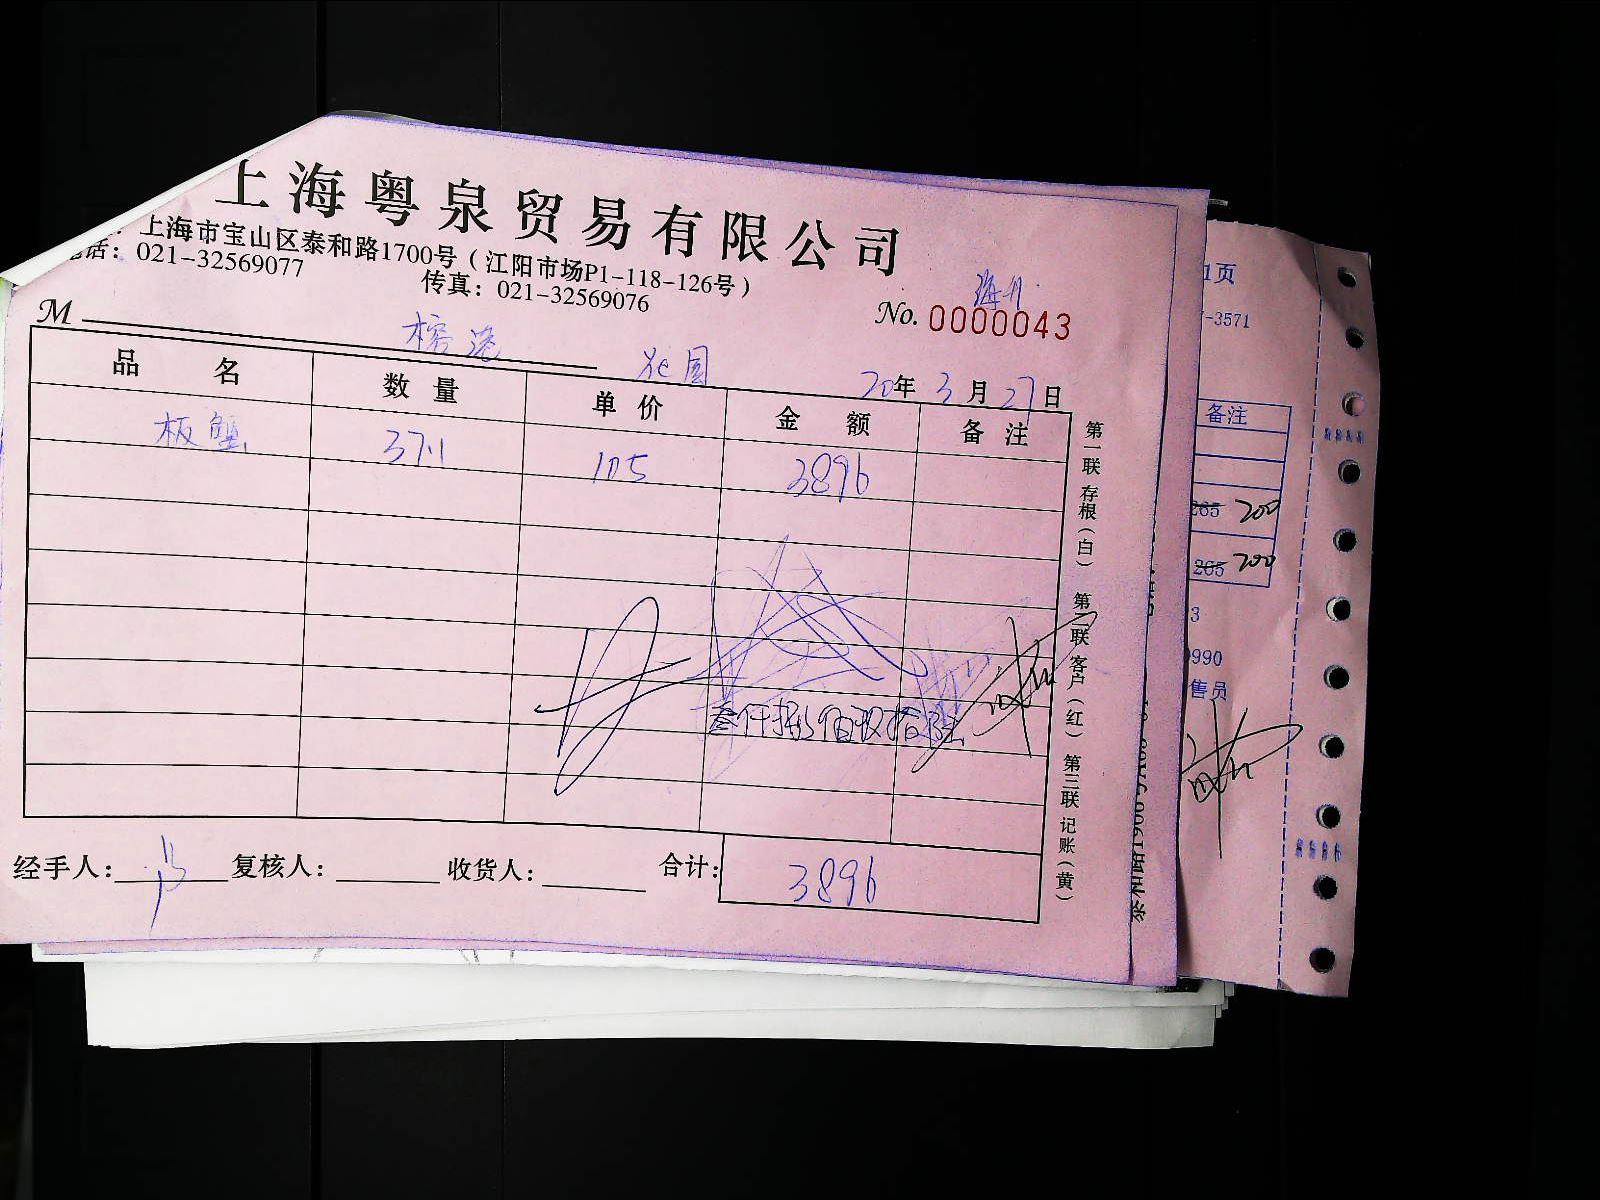 上海粤泉贸易有限公司
上海市宝山区泰和路1700号（江阳市场P1-118-126号）
话：021-32569077 传真：021-32569076
M 榕港 花园
No. 0000043
20年3月27日
品 名 数 量 单 价 金 额 备 注
板蟹 37.1 105 3896
叁仟捌佰玖拾陆
经手人： 复核人： 收货人： 合计：3896
第一联 存根（白） 第二联 客户（红） 第三联 记账（黄）
1页
-3571
备注
265 200
265 200
3
990
售员